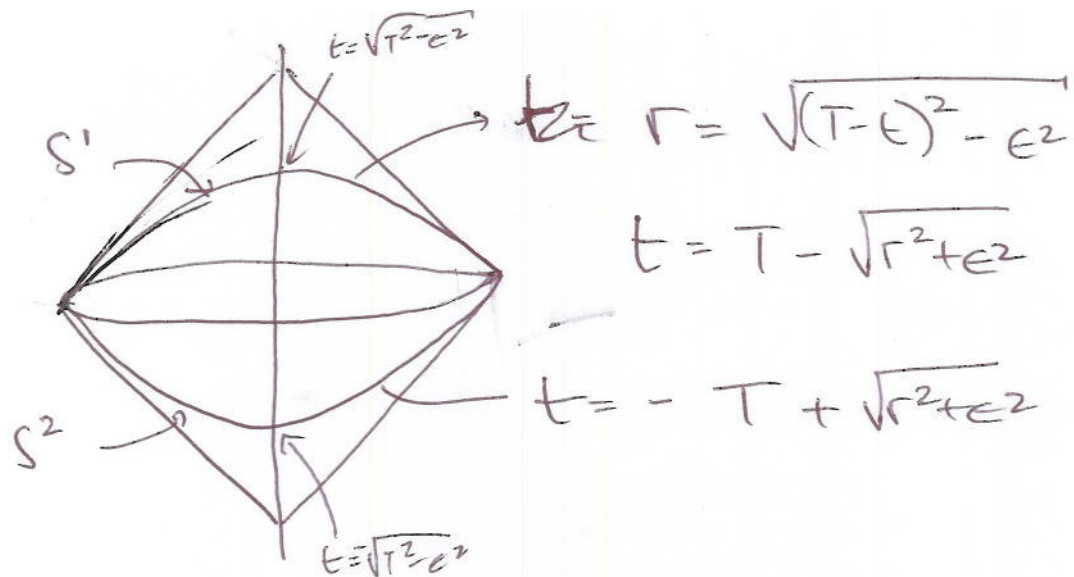 t=√(T²-ϵ²)
S¹
r = √((T-t)² - ϵ²)
t = T - √(r²+ϵ²)
t = - T + √(r²+ϵ²)
S²
t=√(T²-ϵ²)